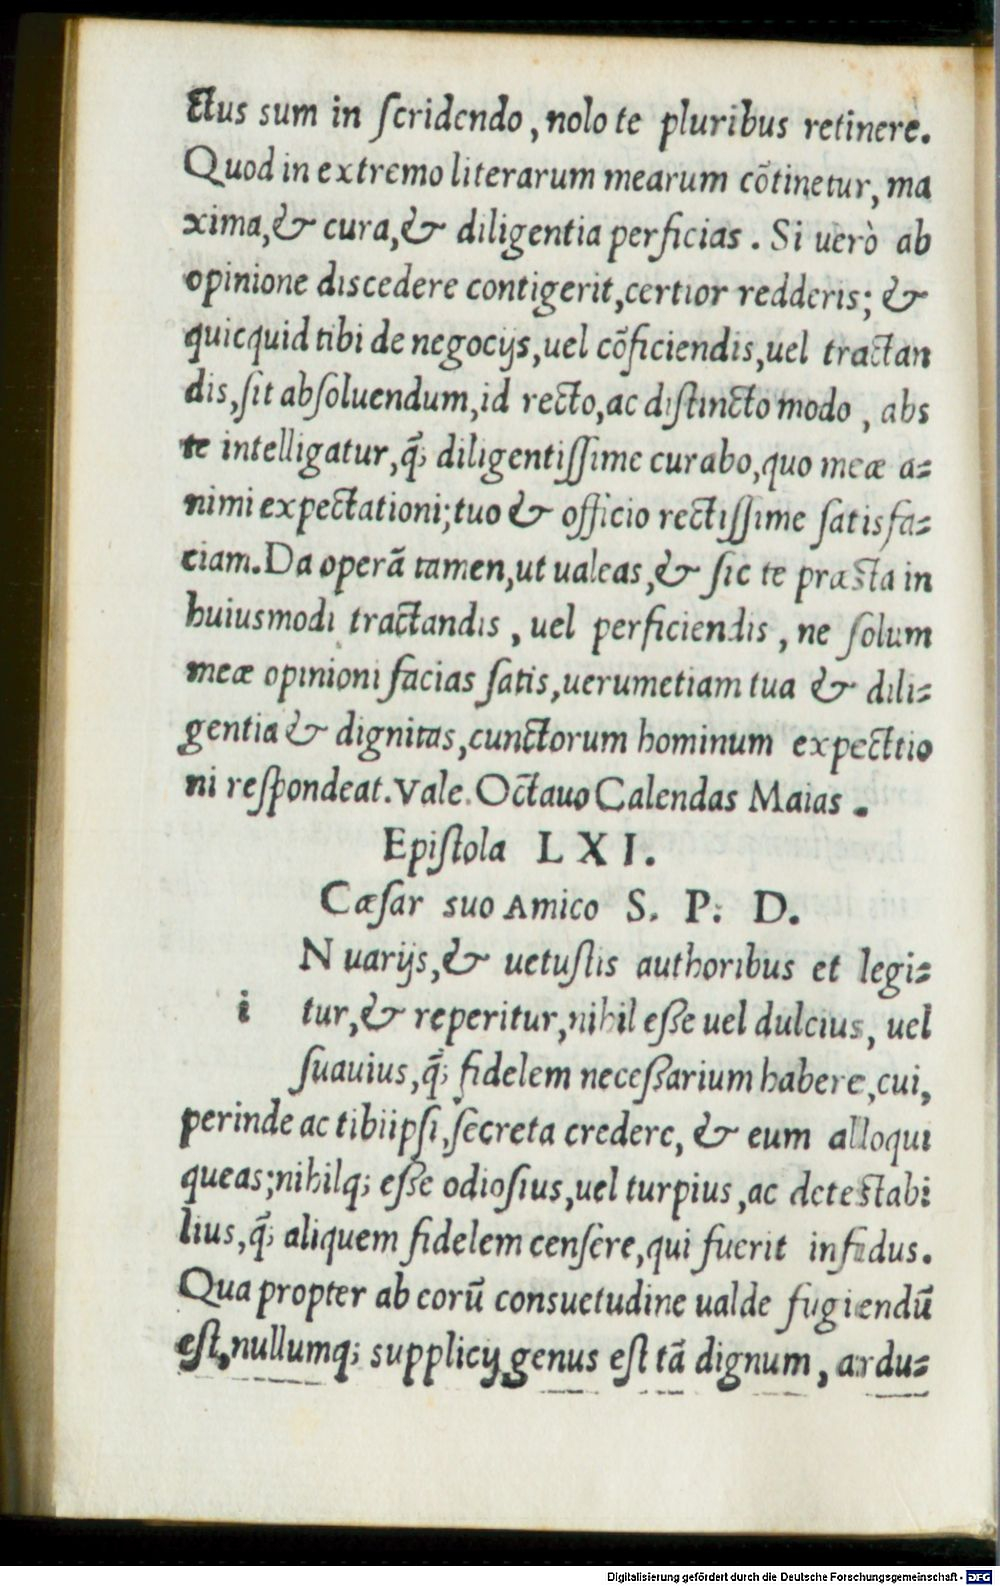 ctus sum in ſcridendo, nolo te pluribus retinere.
Quod in extremo literarum mearum cõtinetur, ma
xima, & cura, & diligentia perficias. Si uerò ab
opinione discedere contigerit, certior redderis; &
quicquid tibi de negocijs, uel cõficiendis, uel tractan
dis, ſit abſoluendum, id recto, ac diſtincto modo, abs
te intelligatur, q̃; diligentiſſime curabo, quo meæ a=
nimi expectationi; tuo & officio rectiſſime ſatisfa=
ciam. Da operã tamen, ut ualeas, & ſic te præſta in
huiusmodi tractandis, uel perficiendis, ne ſolum
meæ opinioni facias ſatis, uerumetiam tua & dili=
gentia & dignitas, cunctorum hominum expecttio
ni reſpondeat. Vale. Octauo Calendas Maias.
Epiſtola LXI.
Cæſar suo Amico S. P. D.
N uarijs, & uetuſtis authoribus et legi=
i tur, & reperitur, nihil eſſe uel dulcius, uel
ſuauius, q̃; fidelem neceſſarium habere, cui,
perinde ac tibiipſi, ſecreta credere, & eum alloqui
queas; nihilq; eſſe odioſius, uel turpius, ac deteſtabi
lius, q̃; aliquem fidelem cenſere, qui fuerit infidus.
Qua propter ab eorũ consuetudine ualde fugiendũ
eſt, nullumq; supplicij genus eſt tã dignum, ardu=
Digitalisierung gefördert durch die Deutsche Forschungsgemeinschaft - DFG